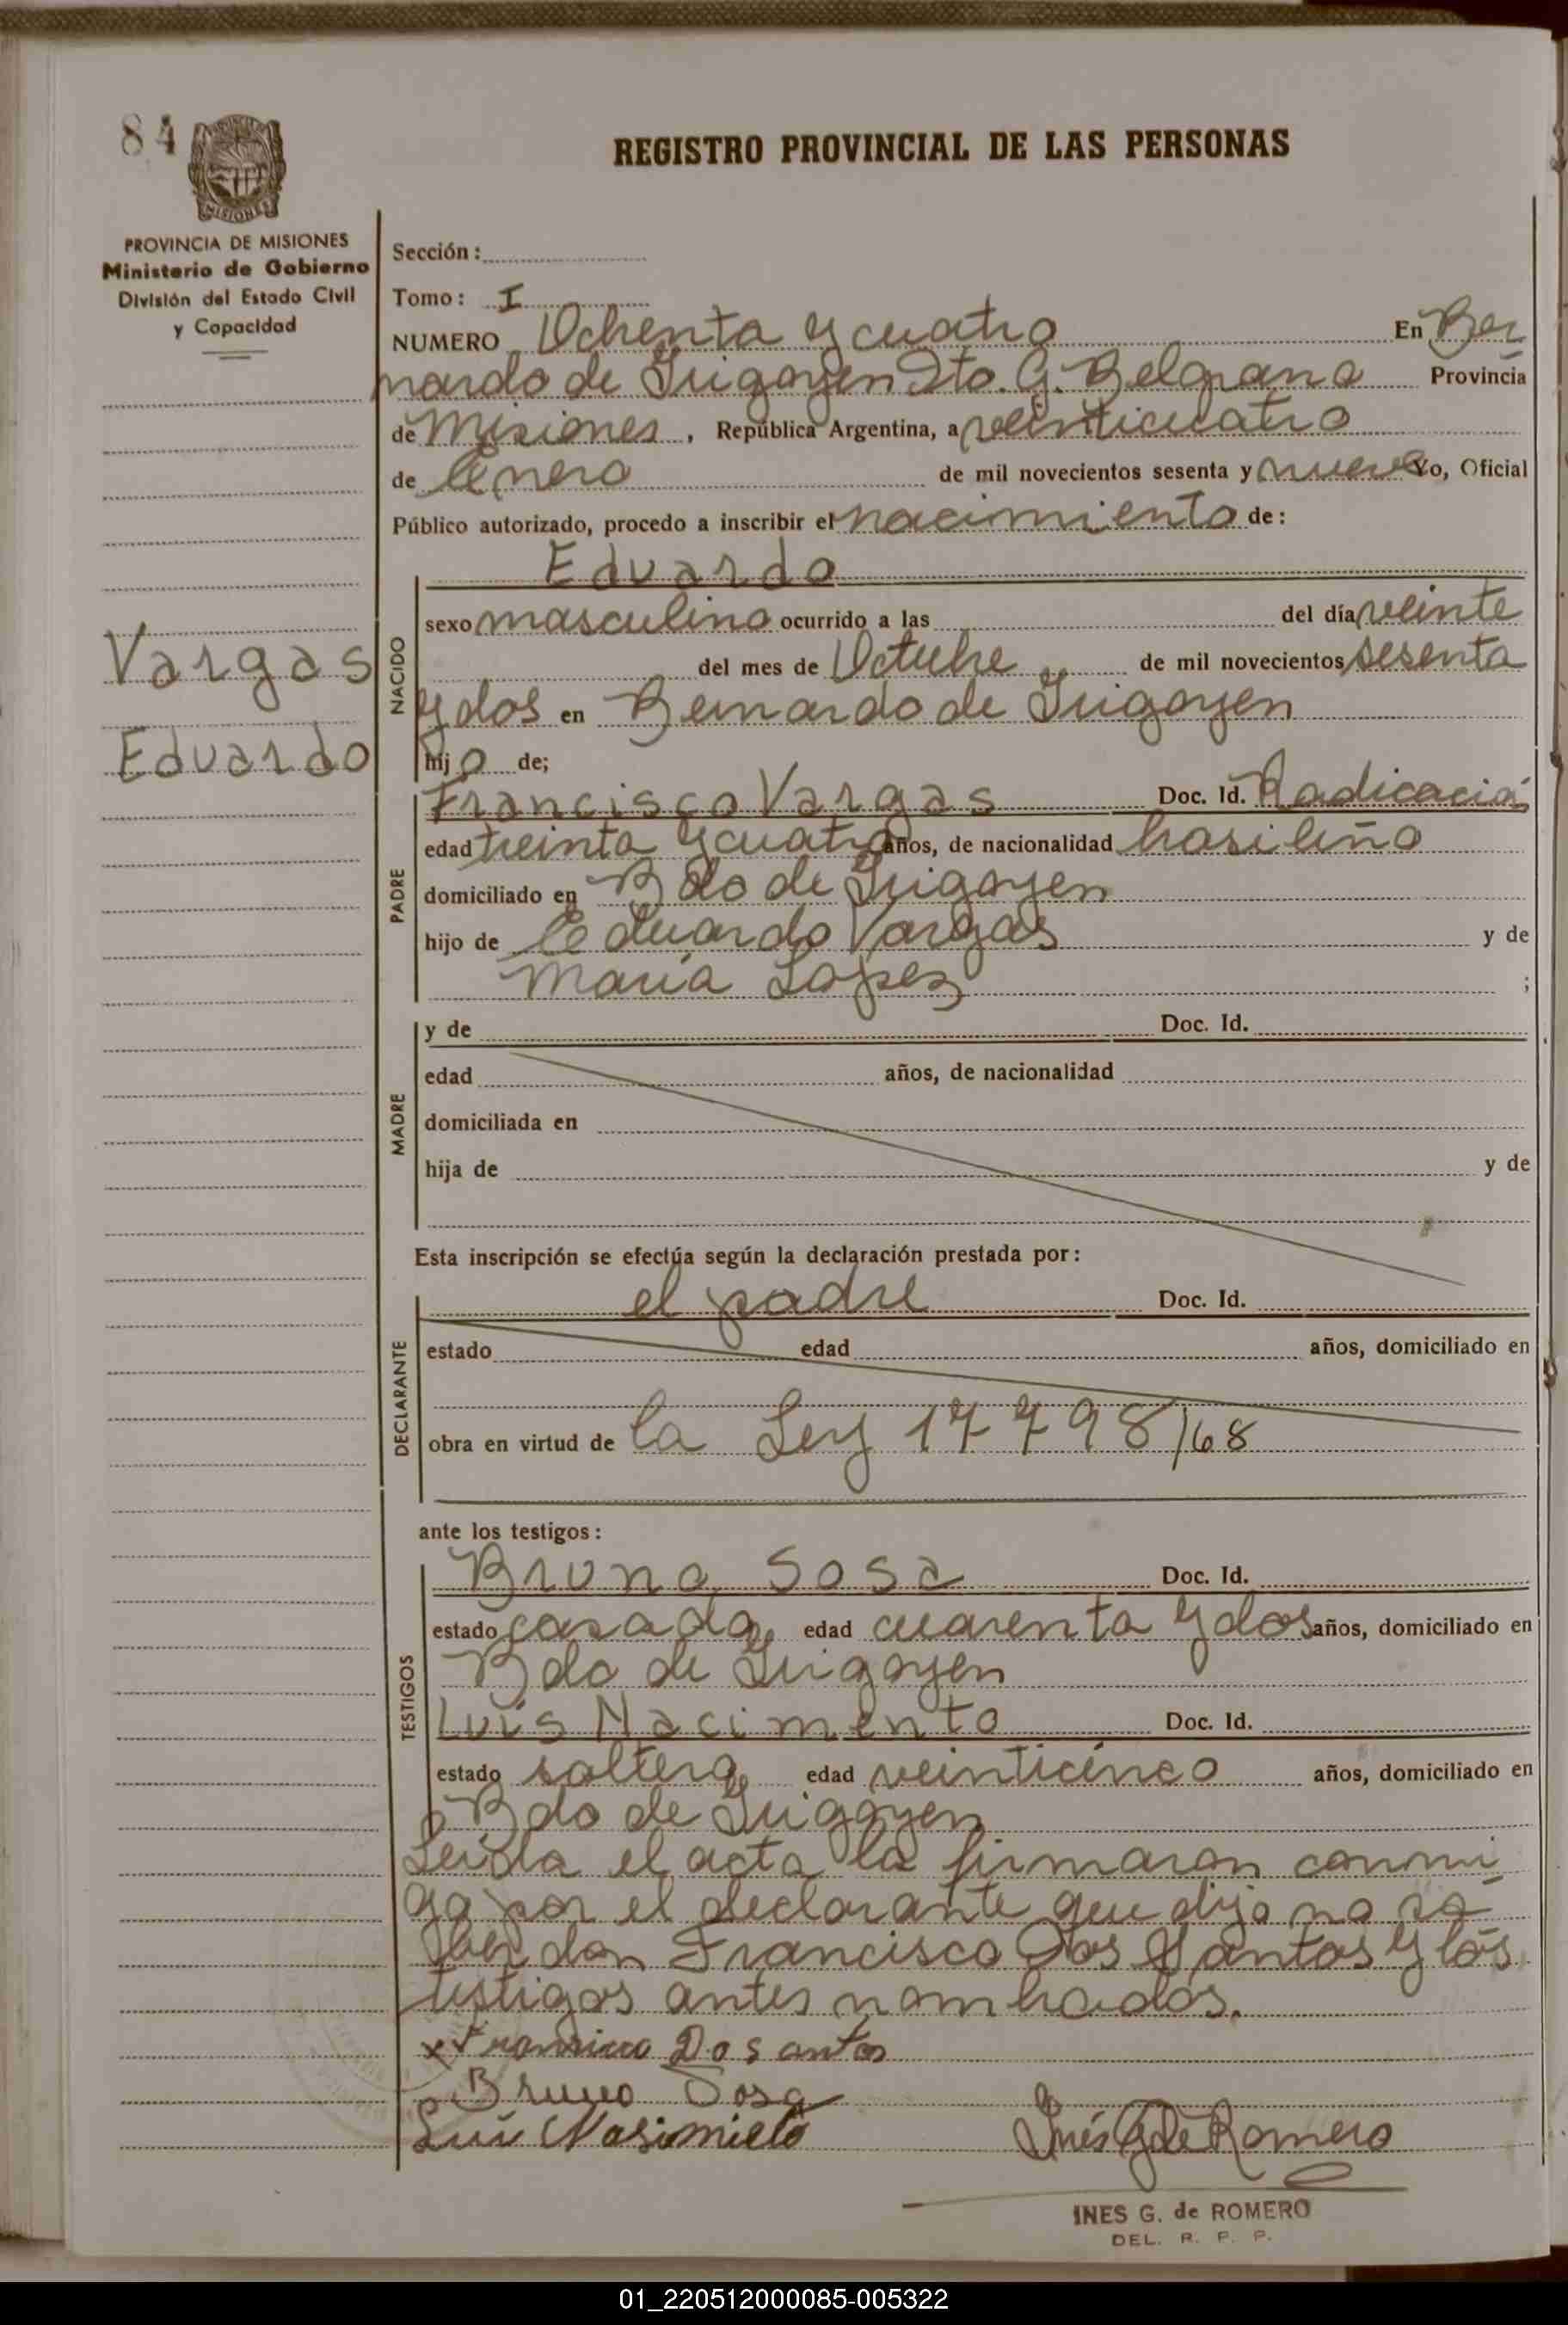 84
REGISTRO PROVINCIAL DE LAS PERSONAS
MISIONES
PROVINCIA DE MISIONES
Ministerio de Gobierno
División del Estado Civil
y Capacidad
Sección:
Tomo: I
NUMERO Ochenta y cuatro En Ber
nardo de Irigoyen Dto. G. Belgrano Provincia
de Misiones, República Argentina, a veinticuatro
de Enero de mil novecientos sesenta y nueve Yo, Oficial
Público autorizado, procedo a inscribir el nacimiento de:
Eduardo
NACIDO
sexo masculino ocurrido a las del día veinte
del mes de Octubre de mil novecientos sesenta
y dos en Bernardo de Irigoyen
hijo de;
Vargas
Eduardo
PADRE
Francisco Vargas Doc. Id. Radicació
edad treinta y cuatro años, de nacionalidad brasileño
domiciliado en Bdo de Irigoyen
hijo de Eduardo Vargas y de
María Lopez ;
MADRE
y de Doc. Id.
edad años, de nacionalidad
domiciliada en
hija de y de
Esta inscripción se efectúa según la declaración prestada por:
DECLARANTE
el padre Doc. Id.
estado edad años, domiciliado en
obra en virtud de la Ley 17798/68
ante los testigos:
TESTIGOS
Bruno Sosa Doc. Id.
estado casado edad cuarenta y dos años, domiciliado en
Bdo de Irigoyen
Luis Nacimento Doc. Id.
estado soltero edad veinticinco años, domiciliado en
Bdo de Irigoyen
Leída el acta la firmaron conmi
go por el declarante que dijo no sa
ber don Francisco Dos Santos y los
testigos antes nombrados.
x Francisco Dos antos
Bruno Sosa
Luis Nasimieto Inés G de Romero
INES G. de ROMERO
DEL. R. P. P.
01_220512000085-005322